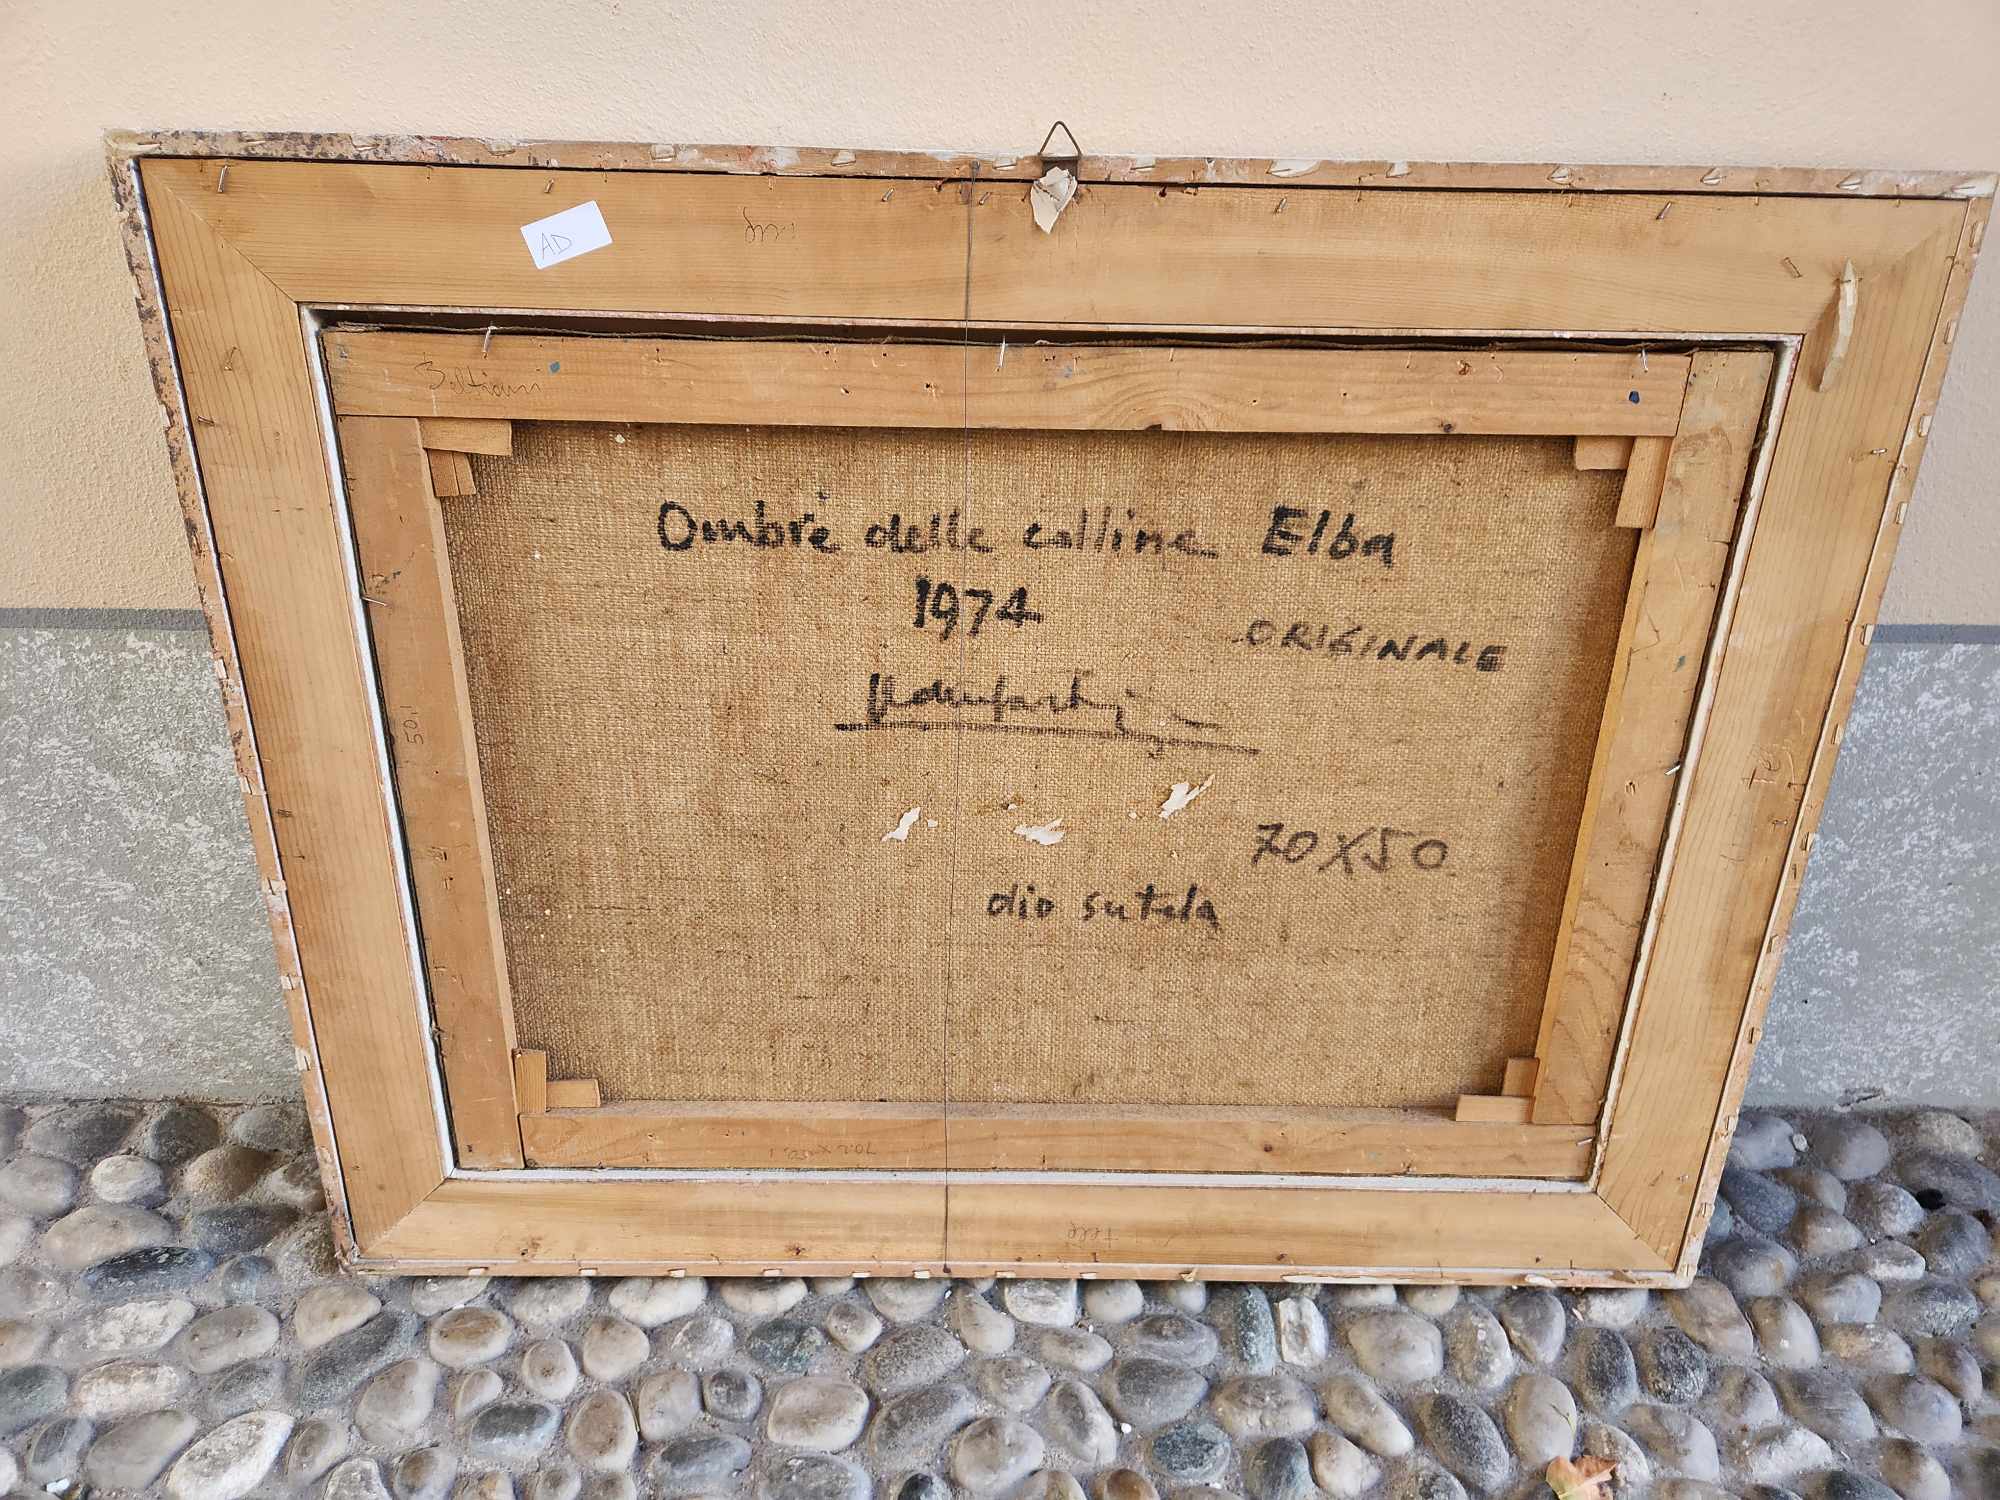 AD
Beltrami
Ombre delle colline Elba
1974
ORIGINALE
50,1
70X50
olio su tela
70.2 x 50.1
tele